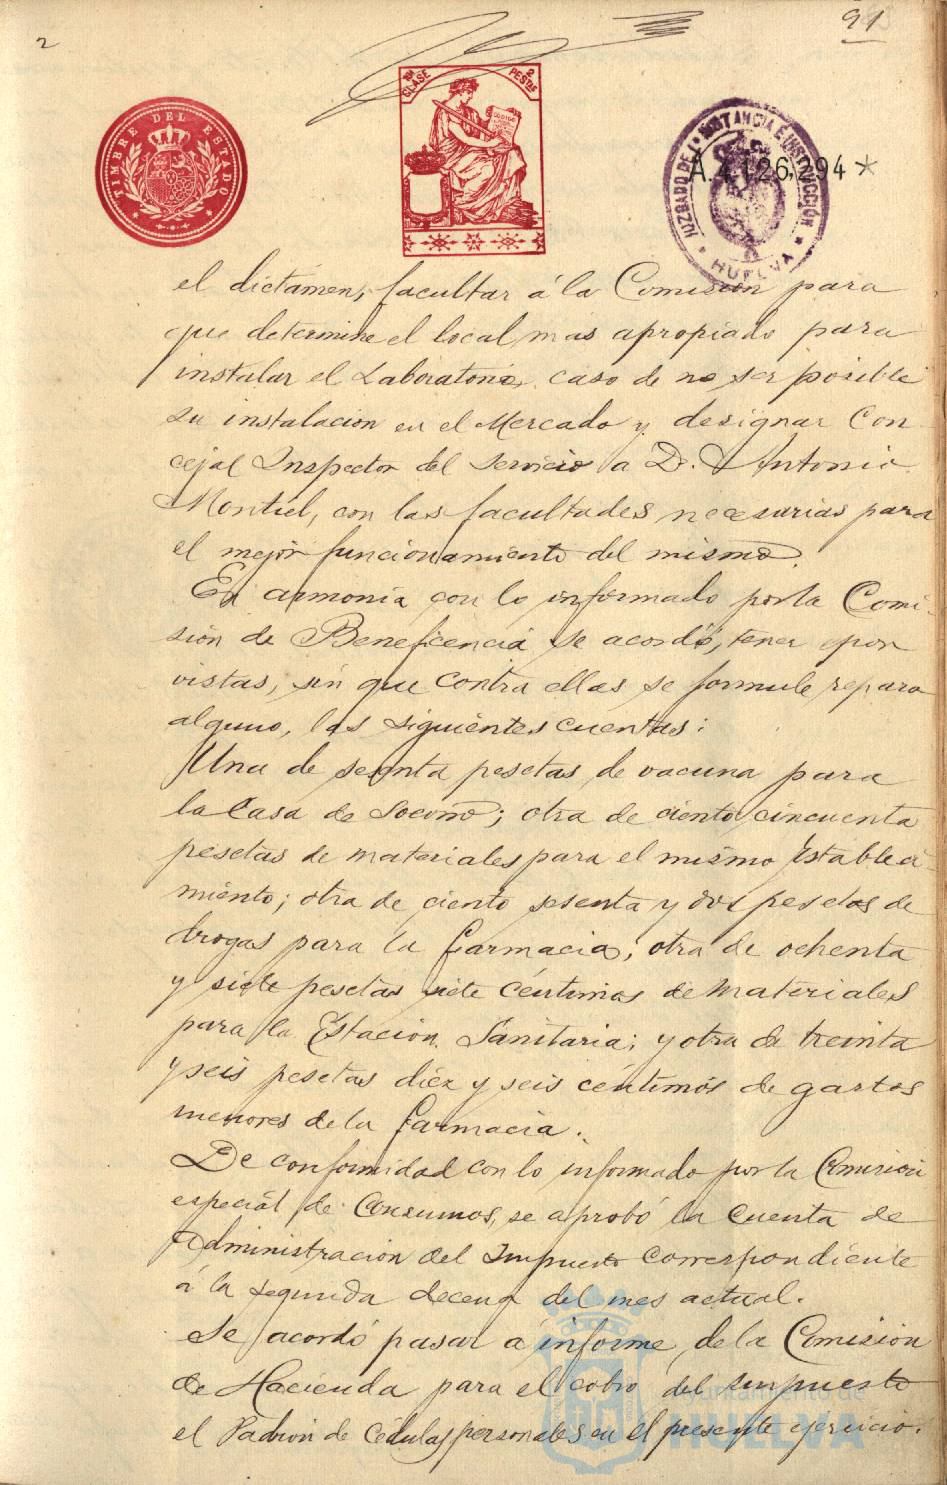 2
91
TIMBRE DEL ESTADO
10ª CLASE
2 PESTAS
JUZGADO DE 1ª INSTANCIA E INSTRUCCIÓN
HUELVA
A.4.126,294 *
el dictámen, facultar á la Comisión para
que determine el local mas apropiado para
instalar el Laboratorio, caso de no ser posible
su instalación en el Mercado y designar Con
cejal Inspector del Servicio a D. Antonio
Montiel, con las facultades necesarias para
el mejor funcionamiento del mismo.
En armonía con lo informado por la Comi-
sión de Beneficencia se acordó, tener por
vistas, sin que contra ellas se formule reparo
alguno, las siguientes cuentas:
Una de pesetas de vacuna para
la Casa de Socorro; otra de ciento cincuenta
pesetas de materiales para el mismo Estableci
miento; otra de ciento sesenta y dos pesetas de
drogas para la farmacia; otra de ochenta
y siete pesetas siete céntimos de materiales
para la Estación Sanitaria; y otra de treinta
y seis pesetas diez y seis céntimos de gastos
menores de la farmacia.
De conformidad con lo informado por la Comisión
especial de Consumos, se aprobó la cuenta de
Administración del Impuesto correspondiente
á la segunda decena del mes actual.
Se acordó pasar á informe de la Comisión
de Hacienda para el cobro del Impuesto
el Padrón de Cédulas personales en el presente ejercicio.
Ayuntamiento de
HUELVA